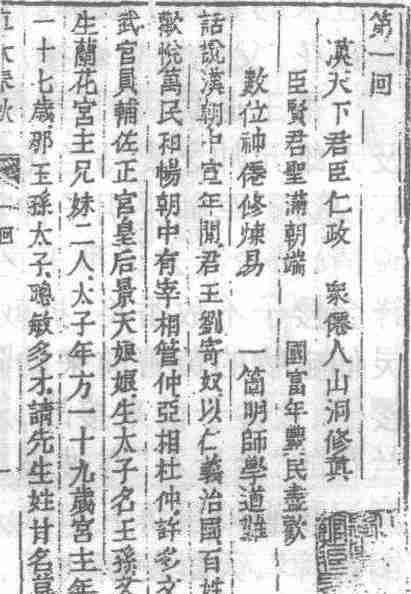 第一回
漢天下君臣仁政　衆僊人山洞修眞
臣賢君聖滿朝端　國富年豐民盡歡
數位神僊修煉易　一箇明師學道難
話說漢朝中宣年間君王劉寄奴以仁義治國百姓
歡悅萬民和暢朝中有宰相管仲亞相杜仲許多文
武官員輔佐正宮皇后景天娘娘生太子名王孫又
生蘭花宮主兄妹二人太子年方一十九歲宮主年
一十七歲那玉孫太子聰敏多才請先生姓甘名
木春秋　一回